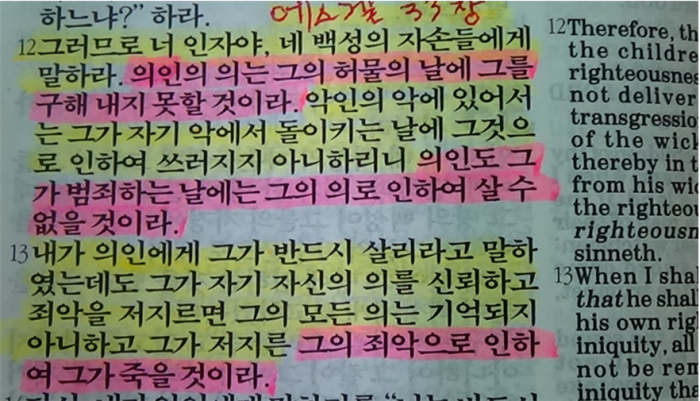 하느냐?” 하라.
에스겔 33장
12그러므로 너 인자야, 네 백성의 자손들에게
말하라. 의인의 의는 그의 허물의 날에 그를
구해 내지 못할 것이라. 악인의 악에 있어서
는 그가 자기 악에서 돌이키는 날에 그것으
로 인하여 쓰러지지 아니하리니 의인도 그
가 범죄하는 날에는 그의 의로 인하여 살 수
없을 것이라.
13내가 의인에게 그가 반드시 살리라고 말하
였는데도 그가 자기 자신의 의를 신뢰하고
죄악을 저지르면 그의 모든 의는 기억되지
아니하고 그가 저지른 그의 죄악으로 인하
여 그가 죽을 것이라.
12Therefore, th
the childre
righteousne
not deliver
transgressio
of the wick
thereby in t
from his wi
the righteo
righteousn
sinneth.
13When I sha
that he shal
his own rig
iniquity, all
not be rem
iniquity tha